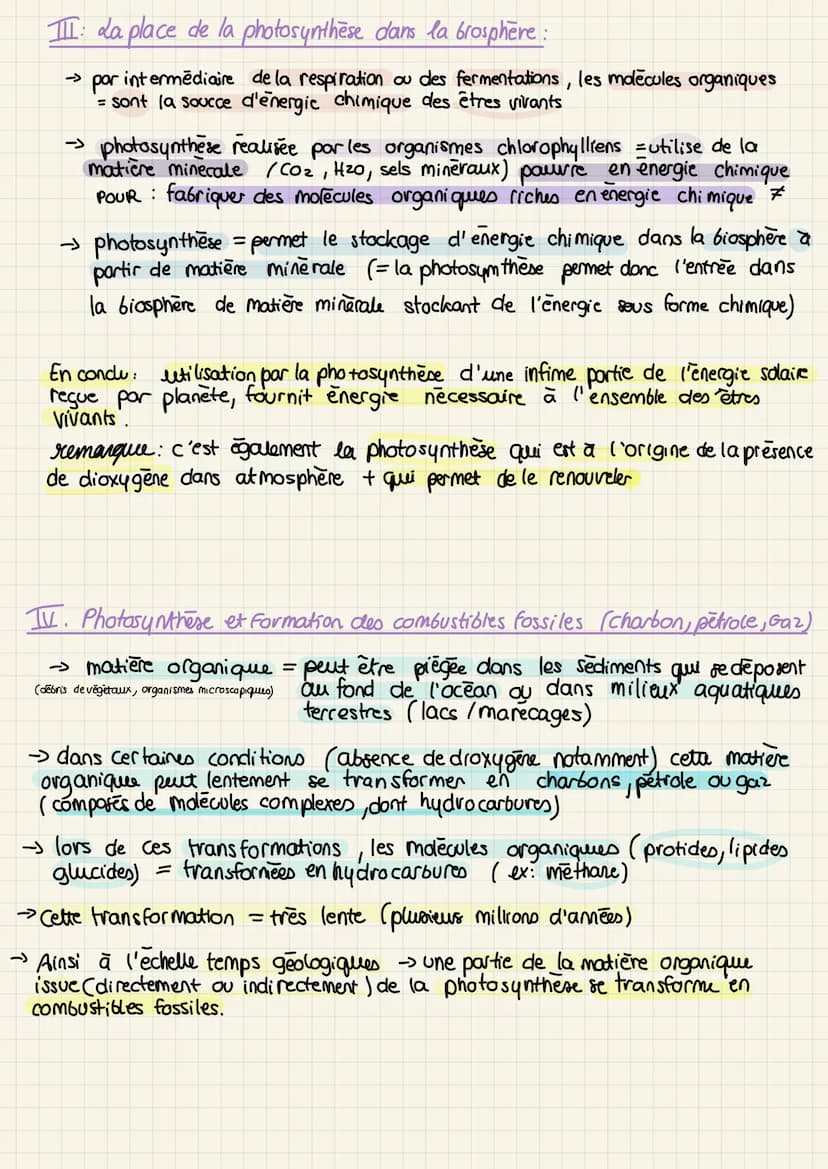 III: La place de la photosynthèse dans la biosphère :
→ par intermédiaire de la respiration ou des fermentations, les molécules organiques
= sont la source d'énergie chimique des êtres vivants
→ photosynthèse réalisée par les organismes chlorophylliens = utilise de la
matière minérale (CO2, H2O, sels minéraux) pauvre en énergie chimique
POUR : fabriquer des molécules organiques riches en énergie chimique ≠
→ photosynthèse = permet le stockage d'énergie chimique dans la biosphère à
partir de matière minérale (= la photosymthèse permet donc l'entrée dans
la biosphère de matière minérale stockant de l'énergie sous forme chimique)
En conclu : utilisation par la photosynthèse d'une infime partie de l'énergie solaire
reçue par planète, fournit énergie nécessaire à l'ensemble des êtres
vivants.
remarque : c'est également la photosynthèse qui est à l'origine de la présence
de dioxygène dans atmosphère + qui permet de le renouveler
IV. Photosynthèse et Formation des combustibles fossiles (charbon, pétrole, Gaz)
→ matière organique = peut être piégée dans les sédiments qui se déposent
(débris de végétaux, organismes microscopiques) au fond de l'océan ou dans milieux aquatiques
terrestres (lacs / marécages)
→ dans certaines conditions (absence de dioxygène notamment) cette matière
organique peut lentement se transformer en charbons, pétrole ou gaz
(composés de molécules complexes, dont hydrocarbures)
→ lors de ces transformations, les molécules organiques (protides, lipides
glucides) = transformées en hydrocarbures (ex: méthane)
→ Cette transformation = très lente (plusieurs millions d'années)
→ Ainsi à l'échelle temps géologiques → une partie de la matière organique
issue (directement ou indirectement) de la photosynthèse se transforme en
combustibles fossiles.